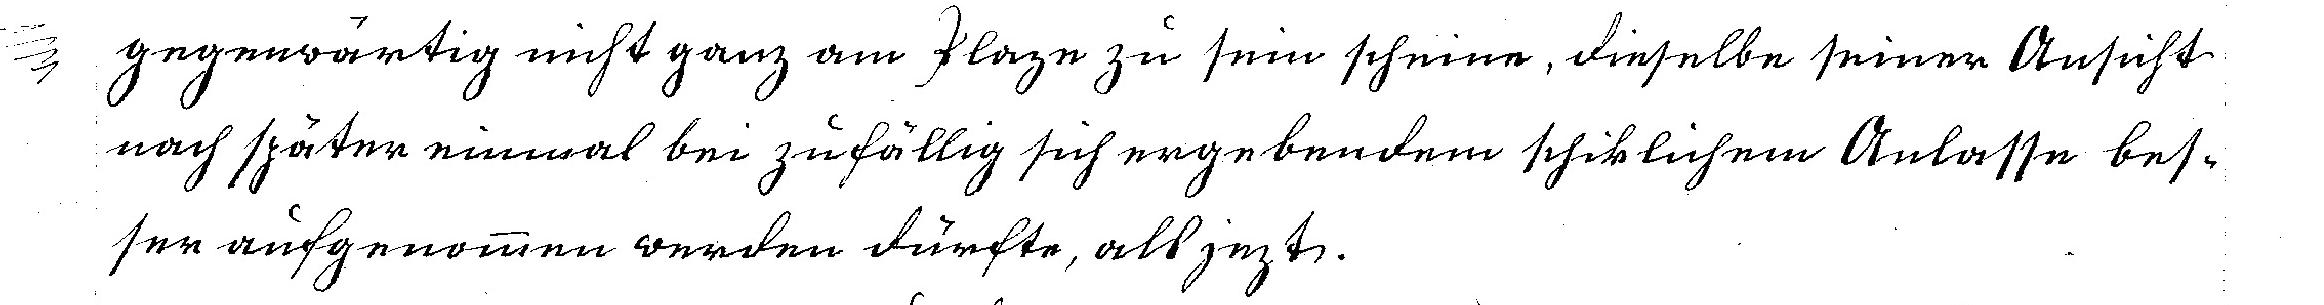 gegenwärtig nicht ganz am Plaze zu sein scheine, dieselbe seiner Ansicht
nach später einmal bei zufällig sich ergebendem schiklichem Anlasse bes-
ser aufgenom̅en werden dürfte, als jezt.